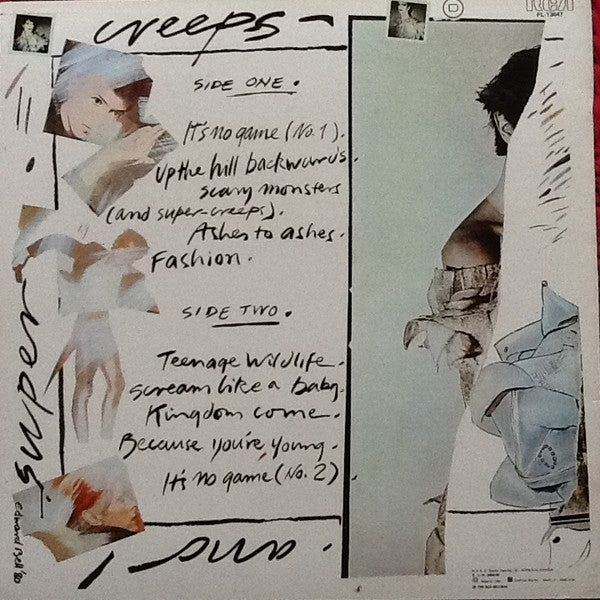 creeps -
RCA
PL 13647
SIDE ONE.
It's no game (No. 1).
Up the hill backwards.
scary monsters
(and super-creeps).
Ashes to ashes.
Fashion.
SIDE TWO.
Teenage wildlife.
Scream like a baby.
Kingdom come.
Because you're young.
It's no game (No. 2)
super
and
Edward Bell '80